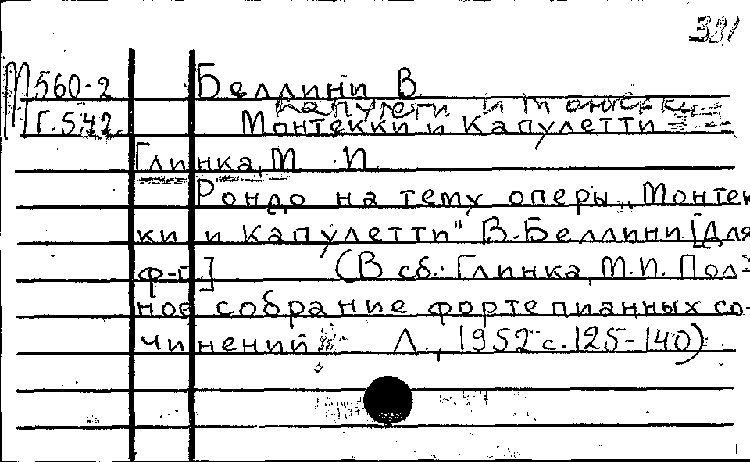 381
М560-2 Беллини В.
Капулети и Монтекки
Г.542 Монтекки и Капулетти
Глинка, М. И.
Рондо на тему оперы „Монтек
ки и Капулетти" В. Беллини [Для
ф-п] (В сб.: Глинка, М.И. Пол-
ное собрание фортепианных со-
чинений Л., 1952 с. 125-140)